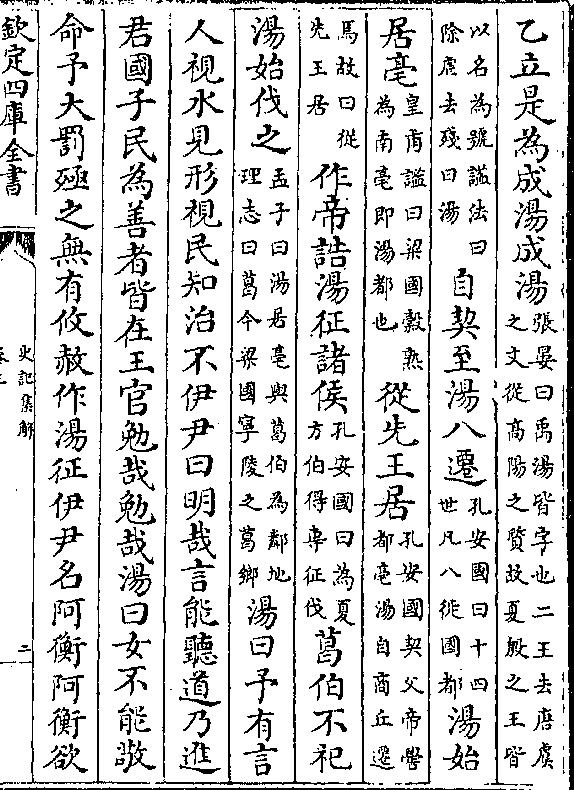 乙立是為成湯成湯張晏曰禹湯皆字也二王去唐虞之文從高陽之質故夏殷之王皆
以名為號諡法曰除虐去殘曰湯自契至湯八遷孔安國曰十四世凡八徙國都湯始
居亳皇甫謐曰梁國穀熟為南亳即湯都也從先王居孔安國契父帝嚳都亳湯自商丘遷
焉故曰從先王居作帝誥湯征諸侯孔安國曰為夏方伯得專征伐葛伯不祀
湯始伐之孟子曰湯居亳與葛伯為鄰地理志曰葛今梁國寧陵之葛鄉湯曰予有言
人視水見形視民知治不伊尹曰明哉言能聽道乃進
君國子民為善者皆在王官勉哉勉哉湯曰女不能敬
命予大罰殛之無有攸赦作湯征伊尹名阿衡阿衡欲
欽定四庫全書
史記集解
二